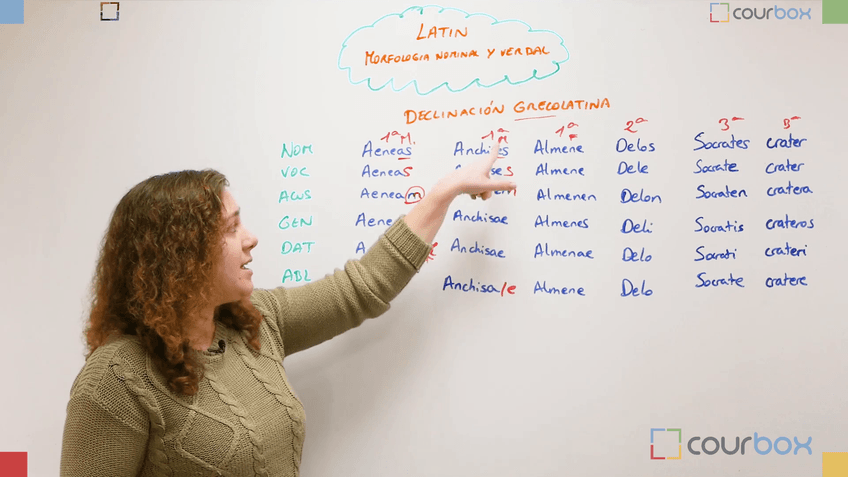 courbox
LATIN
MORFOLOGIA NOMINAL Y VERBAL
DECLINACIÓN GRECOLATINA
1ª M. 1ª M 1ª F 2ª 3ª
NOM Aeneas Anchises Almene Delos Socrates crater
VOC Aeneas Almene Dele Socrate crater
Aeneam Almenen Delon Socraten cratera
GEN Anchisae Almenes Deli Socratis crateros
DAT Anchisae Almenae Delo Socrati crateri
ABL Anchisa/e Almene Delo Socrate cratere
courbox